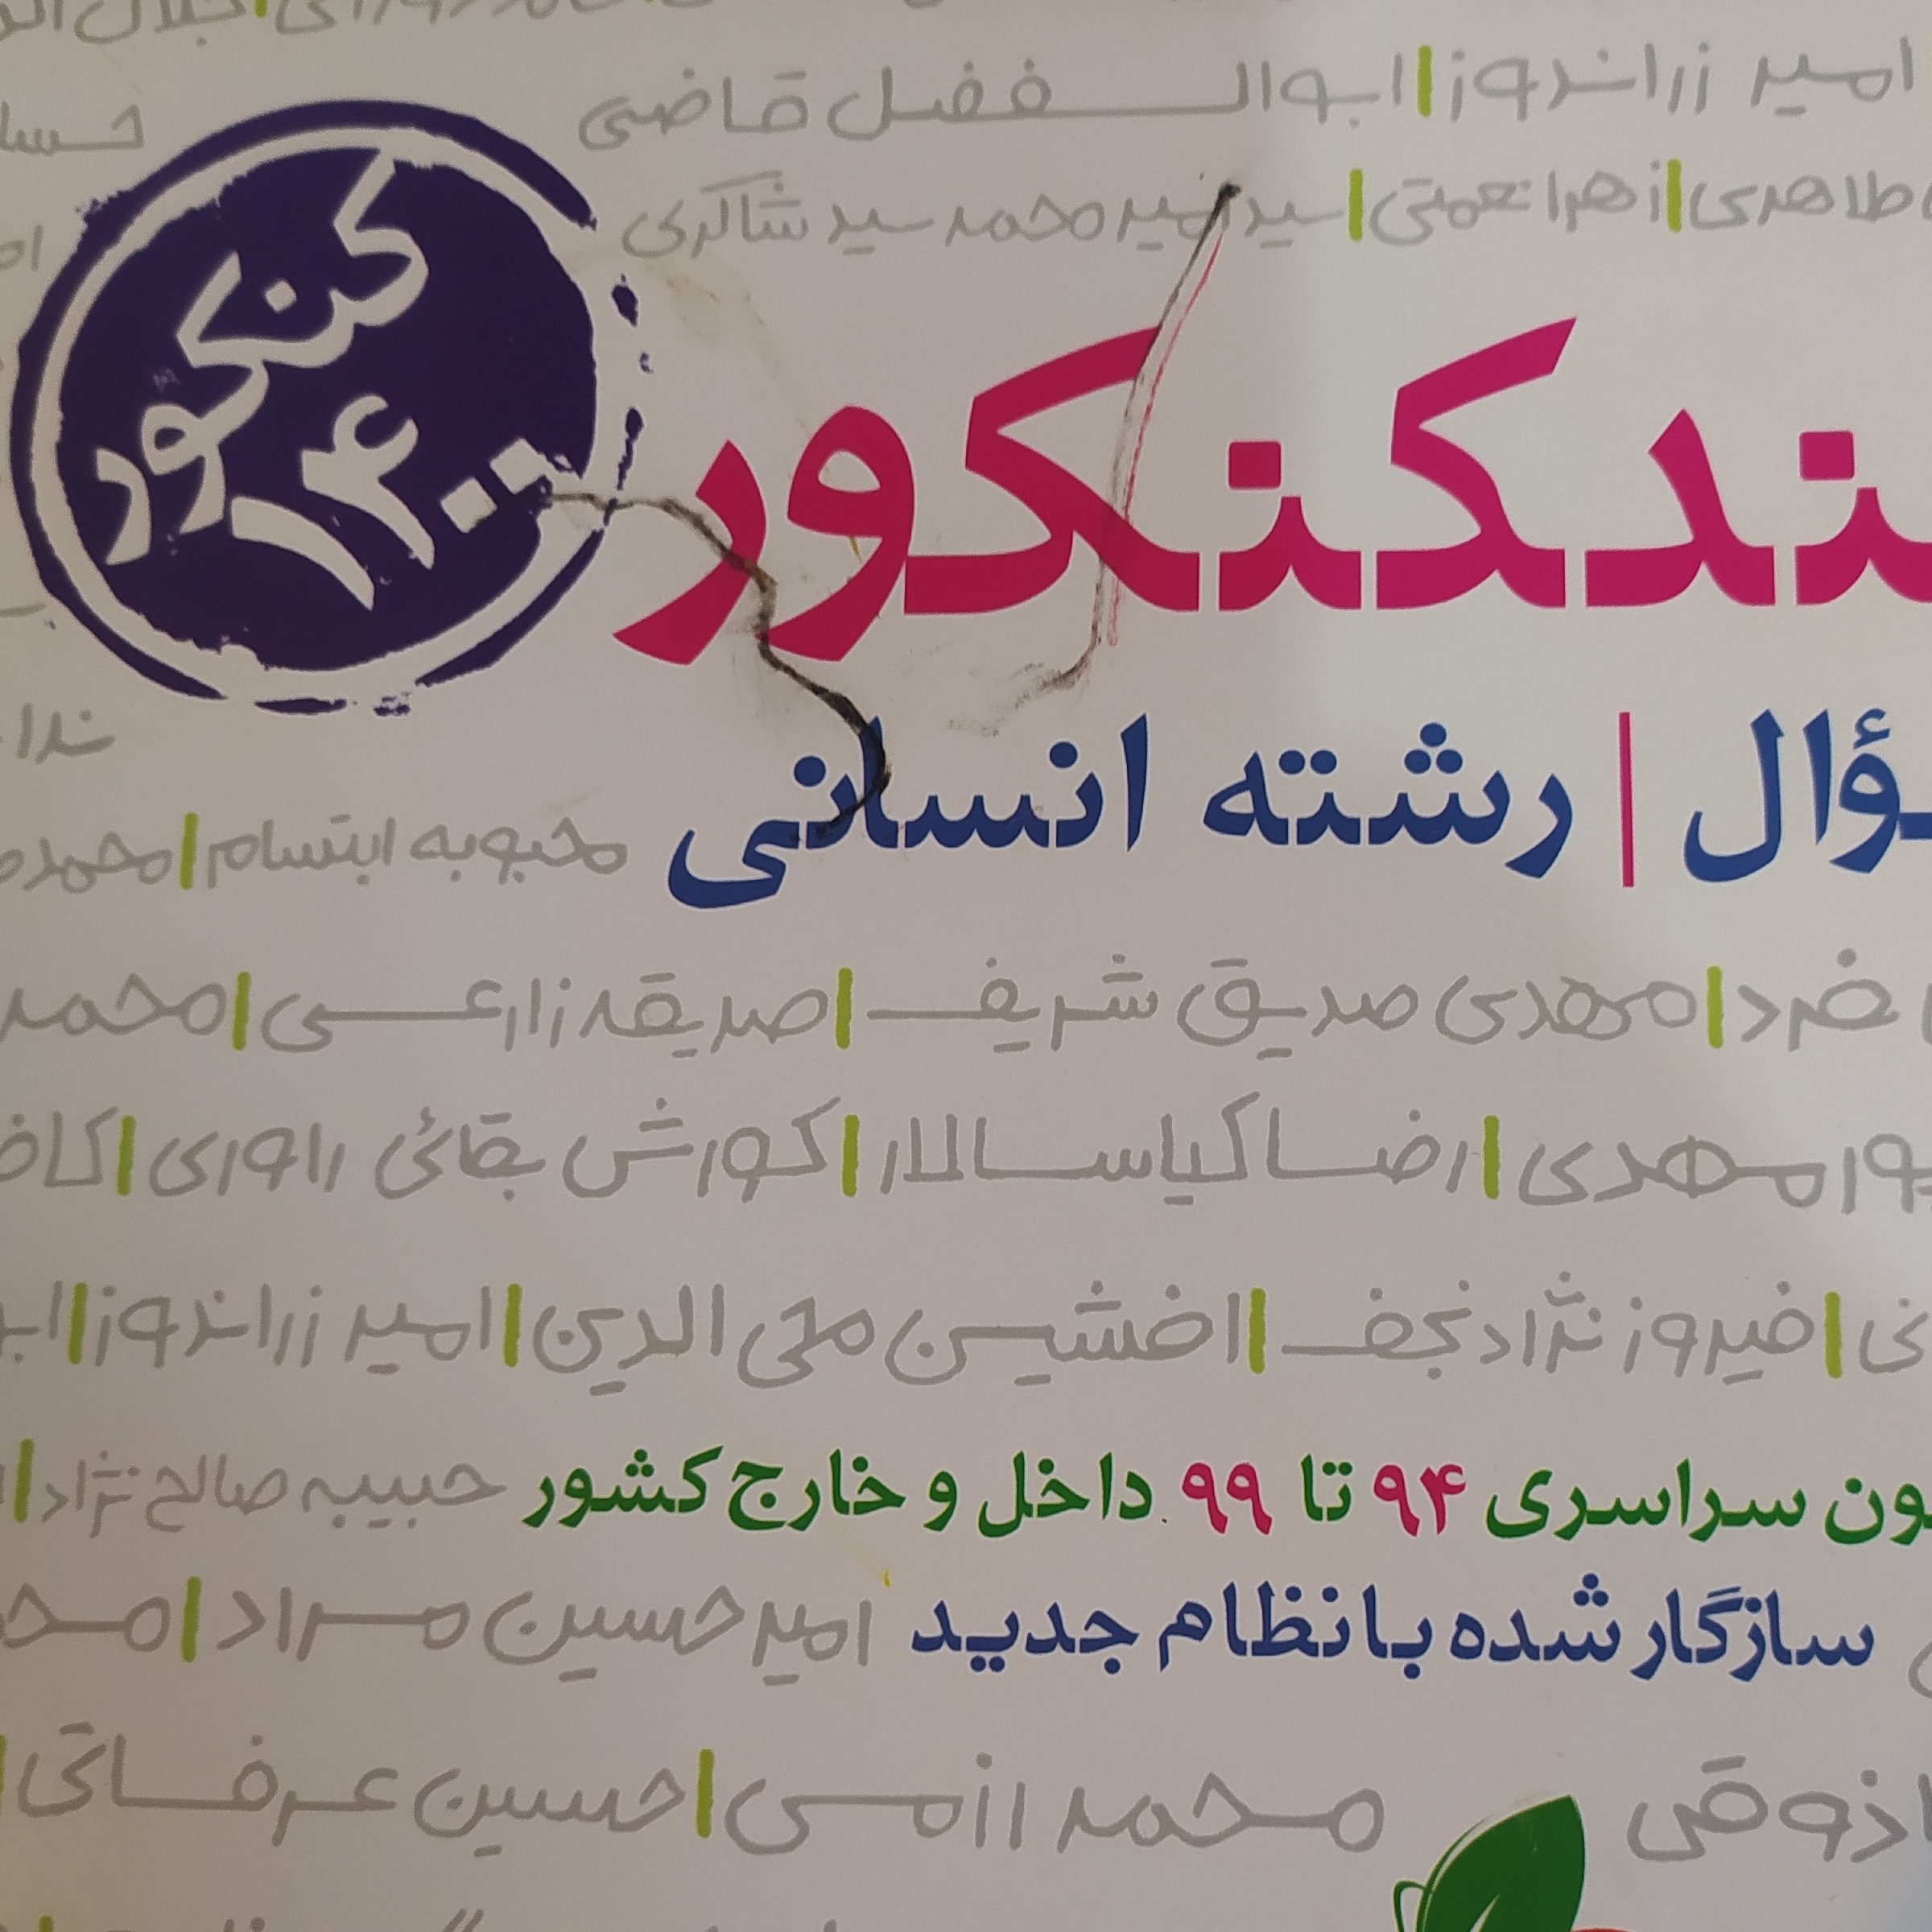 امیر زراندوز | ابوالفضل قاضی
طاهری | زهرا نعمتی | سید امیر محمد سید شاکری
کنکور
۱۴۰۰
ند کنکور
ؤال | رشته انسانی
ندا
محبوبه ابتسام | محمد
مهدی صدیق شریف | صدیقه زارعی | محمد
ور مهدی | رضا کیاسالار | کورش بقائی راوری |
فیروز نژادنجف | افشین محی الدین | امیر زراندوز |
ون سراسری ۹۴ تا ۹۹ داخل و خارج کشور حبیبه صالح نژاد |
سازگار شده با نظام جدید امیرحسین مراد |
ذوقی محمد رزمی | حسین عرفاتی |